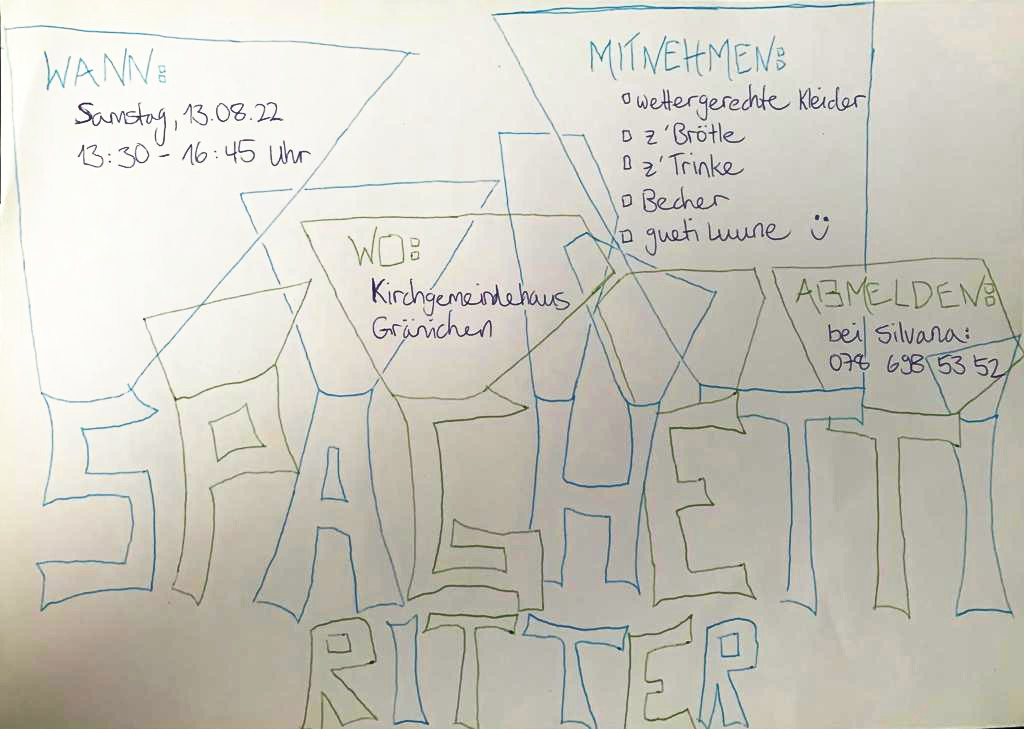 WANN:
Samstag, 13.08.22
13:30 - 16:45 Uhr
MITNEHMEN:
wettergerechte Kleider
z'Brötle
z'Trinke
Becher
gueti Luune
WO:
Kirchgemeindehaus
Gränichen
ABMELDEN:
bei Silvana:
078 698 53 52
SPAGHETTI
RITTER